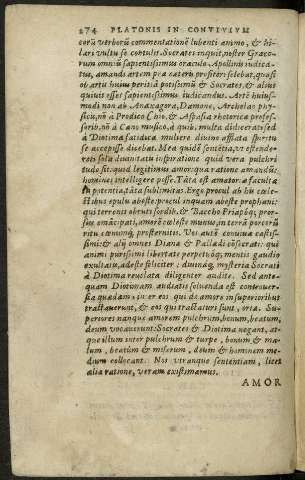 274 PLATONIS IN CONVIVIVM
corū verborū commentationē lubenti animo, & hi-
lari vultu se contulit. Socrates inquit, noster Græco-
rum omniū sapientissimus oraculo Apollinis iudica-
tus, amandi artem præ cæteris profiteri solebat, quasi
ob artis huius peritiā potissimū & Socrates, & alius
quiuis esset sapientissimus iudicandus. Artē huius-
modi non ab Anaxagora, Damone, Archelao phy-
sicis, nō à Prodico Chio, & Aspasia rhetorica profes-
soribꝰ, nō à Cono musico, à quib. multa didicerat: sed
à Diotima fatidica muliere diuino afflata spiritu
se accepisse dicebat. Mea quidē sententia, vt ostende-
ret sola diuinitatis inspiratione quid vera pulchri
tudo sit: quid legitimus amor: qua ratione amandū:
homines intelligere posse. Tāta est amatoriæ faculta
tis potentia, tāta sublimitas. Ergo procul ab his cœle-
stibus epulis abeste, procul inquam abeste prophani:
qui terrenis obruti sordib. & Baccho Priapóq; pror-
sus amore cœleste munus, in terrā porcorū
ritu prosternitis. Vos autē conuiuæ castis-
simi: & alij omnes Dianæ & Palladi cōsecrati: qui
animi purissimi libertate perpetuóq; mentis gaudio
exultatis, adeste feliciter: diuináq; mysteria Socrati
à Diotima reuelata diligenter audite. Sed ante-
quam Diotimam audiatis soluenda est controuer-
sia quædam, inter eos qui de amore in superioribus
tractauerunt, & eos qui tractaturi sunt, orta. Su-
periores nanque amorem pulchrum, bonum, beatum,
deum vocauerunt: Socrates & Diotima negant, at-
que illum inter pulchrum & turpe, bonum & ma-
lum, beatum & miserum, deum & hominem me-
dium collocant. Nos vtranque sententiam, licet
alia ratione, veram existimamus.
AMOR